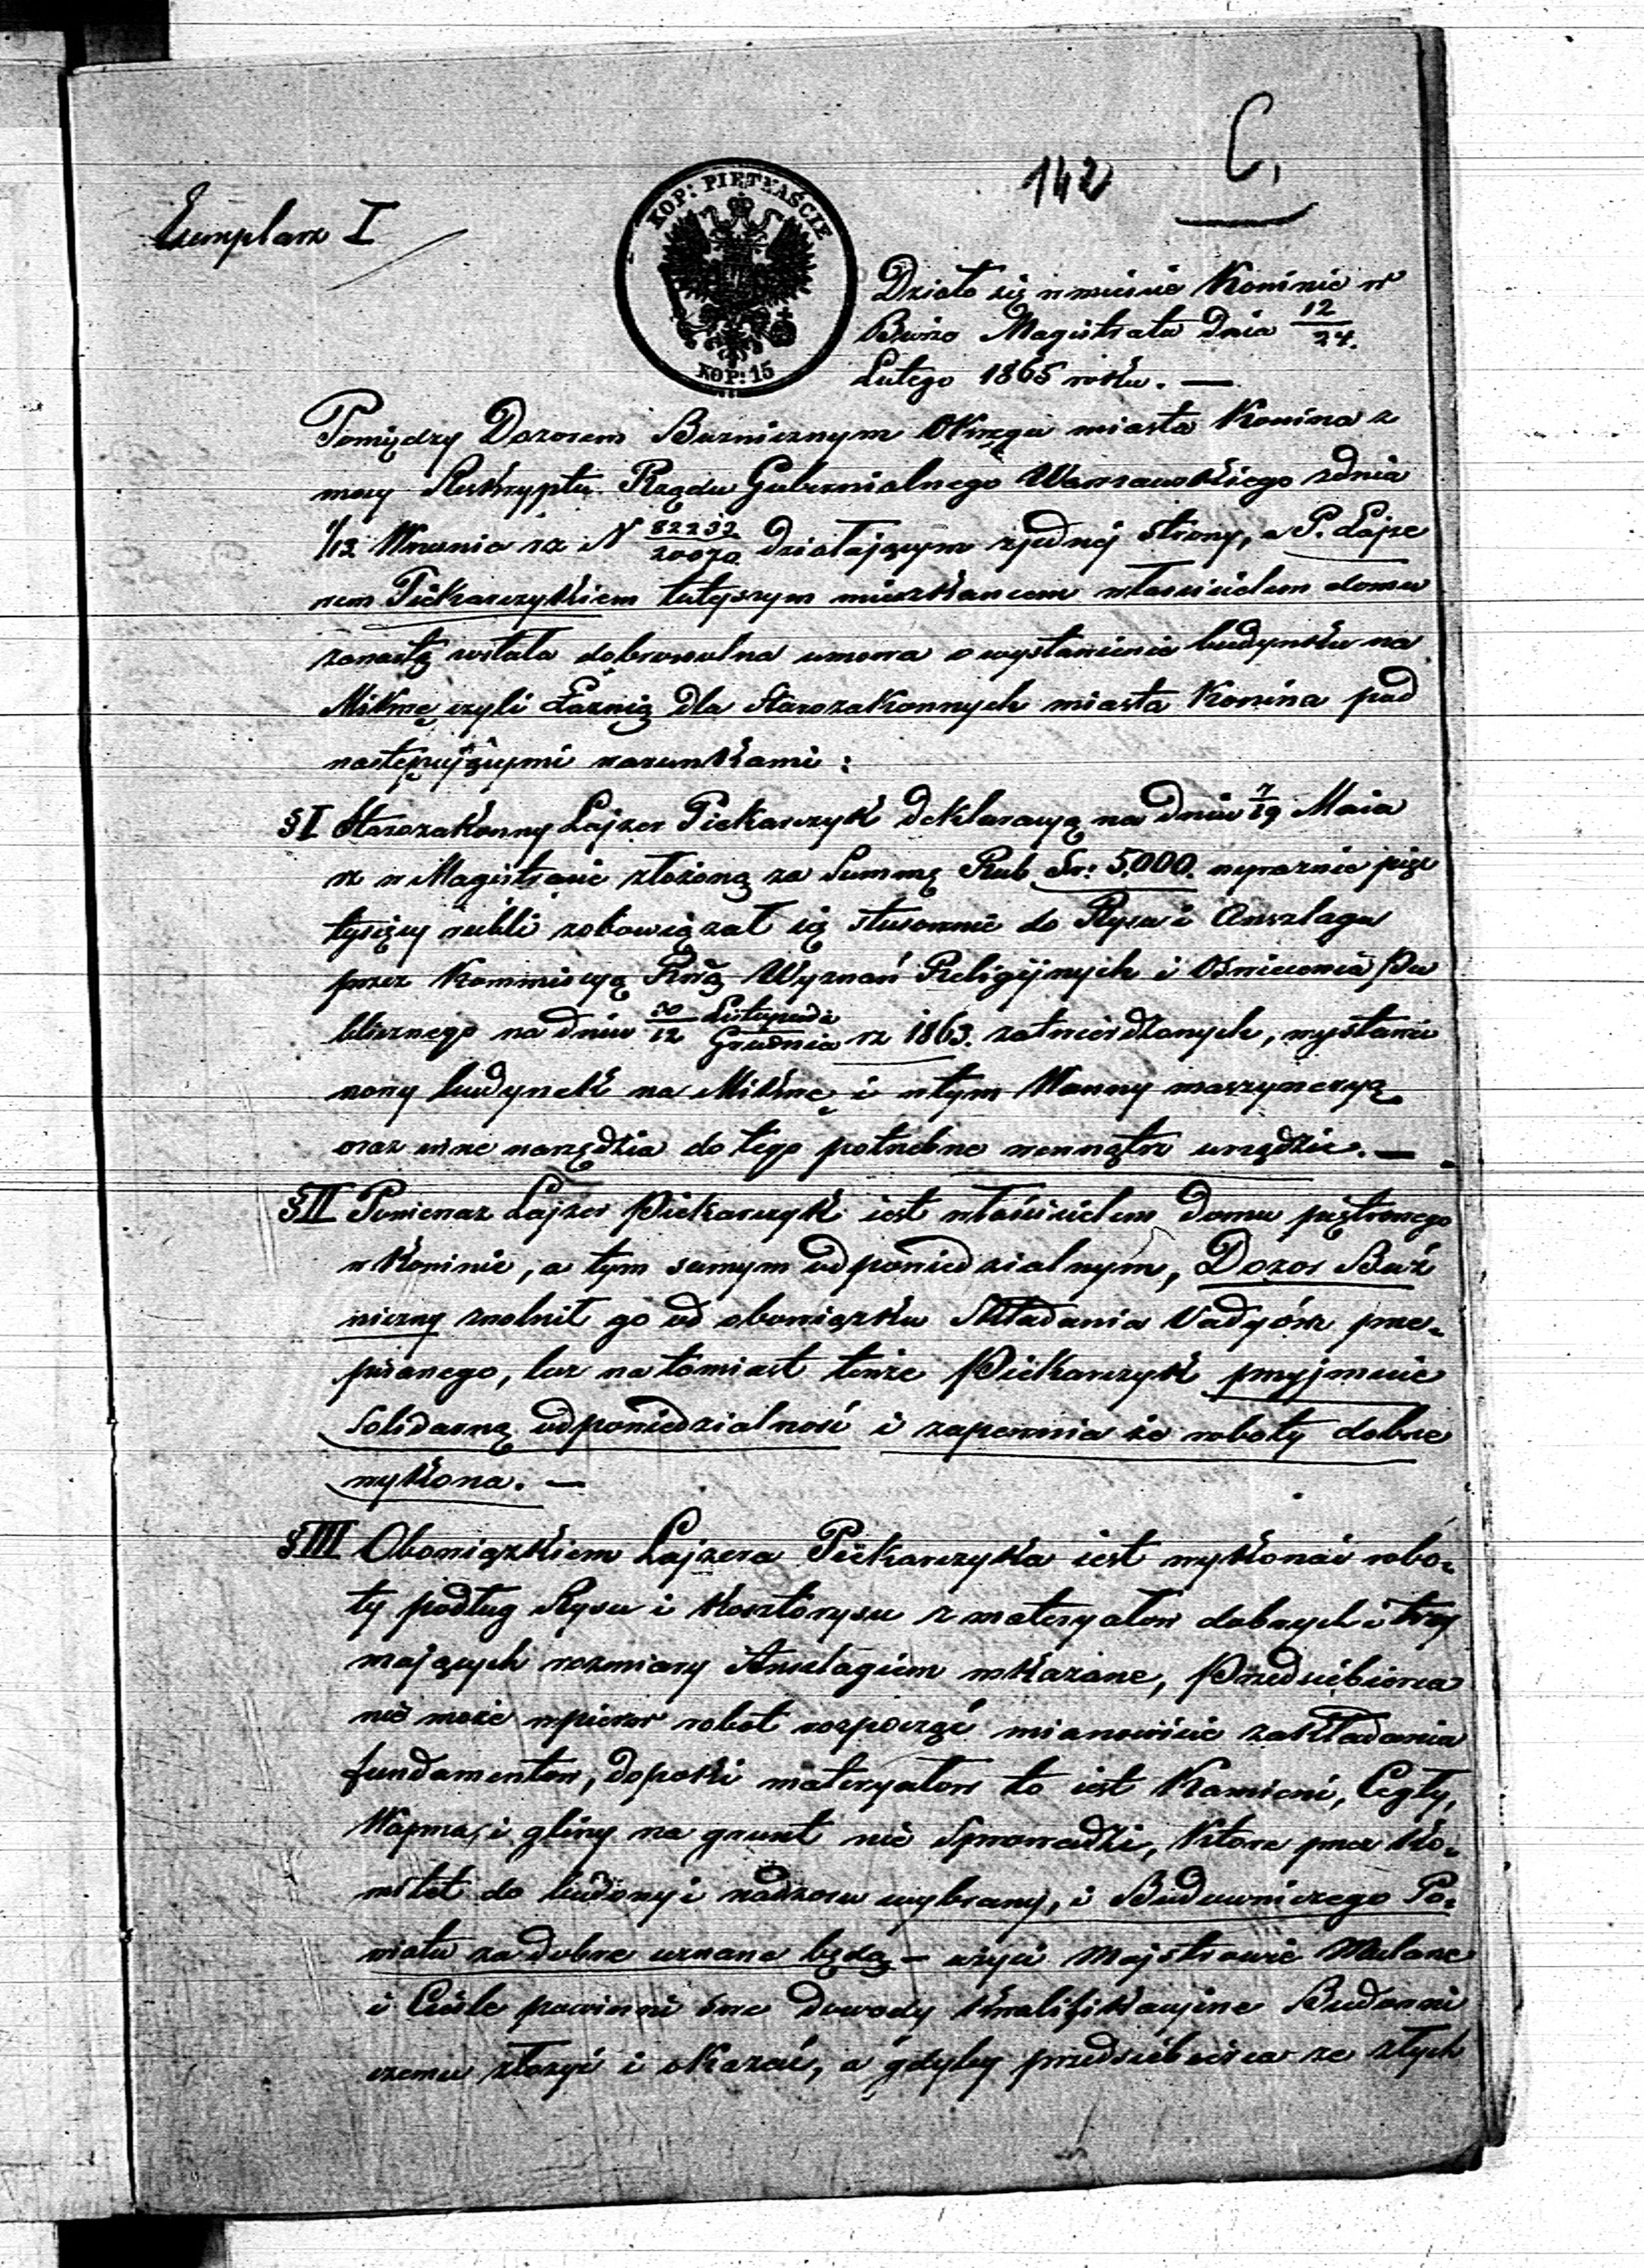 142
C,
Exemplarz I
KOP: PIĘTNAŚCIE
KOP: 15
Działo się w mieście Koninie w
Biurze Magistratu Dnia 12/24.
Lutego 1865 roku. —
Pomiędzy Dozorem Bużnicznym Okręgu miasta Konina z
mocy Reskryptu Rządu Gubernialnego Warszawskiego z dnia
1/12 Września rz N 82232/20070 działającym z jednej strony, a P. Lajze
rem Piekarczykiem tutejszym mieszkancem właścicielem domu
zawartą została dobrowolna umowa o wystawienie budynku na
Mikwę czyli Łaznię dla Starozakonnych miasta Konina pod
następującymi warunkami:
§ I Starozakonny Lajzer Piekarczyk deklaracyą na dniu 7/19 Maia
rz w Magistracie złożoną za Summę Rub Sr: 5,000. wyraznie pięć
tysięcy rubli zobowiązał się stosownie do Rysu i Anszlagu
przez Kommissyą Rwą Wyznań Religijnych i Oświecenia Pu
blicznego na dniu 30/12 Listopada/Grudnia rz 1863. zatwierdzonych, wystawio
nony budynek na Mikwę i w tym Wanny maszyneryą
oraz inne narzędzia do tego potrzebne wewnątrz urządzić. —
§ II Ponieważ Lajzer Piekarczyk iest właścicielem Domu piętrowego
w Koninie, a tym samym odpowiedzialnym, Dozor Buż
niczny zwolnił go od obowiązku Składania Vadyów prze-
pisanego, lecz natomiast tenże Piekarczyk przyjmuie
Solidarną odpowiedzialność i zapewnia że roboty dobrze
wykona. —
§ III Obowiązkiem Lajzera Piekarczyka iest wykonać robo-
ty podług Rysu i Kosztorysu z materyałow dobrych i trzy
mających rozmiary Anszlagiem wskazane, Przedsiębiorca
nie może wpierw robot rozpocząć mianowicie zakładania
fundamentow, dopoki materyałow to iest Kamieni, Cegły,
Wapna, i gliny na grunt nie Sprowadzi, Ktore przez Ko-
mitet do budowy i nadzoru wybrany, i Budowniczego Po-
wiatu za dobre uznane będą — użyci Majstrowie Mularze
i Cieśle powinni swe dowody kwalifikacyjne Budowni
czemu złożyć i okazać, a gdyby przedsiębiorca ze złych